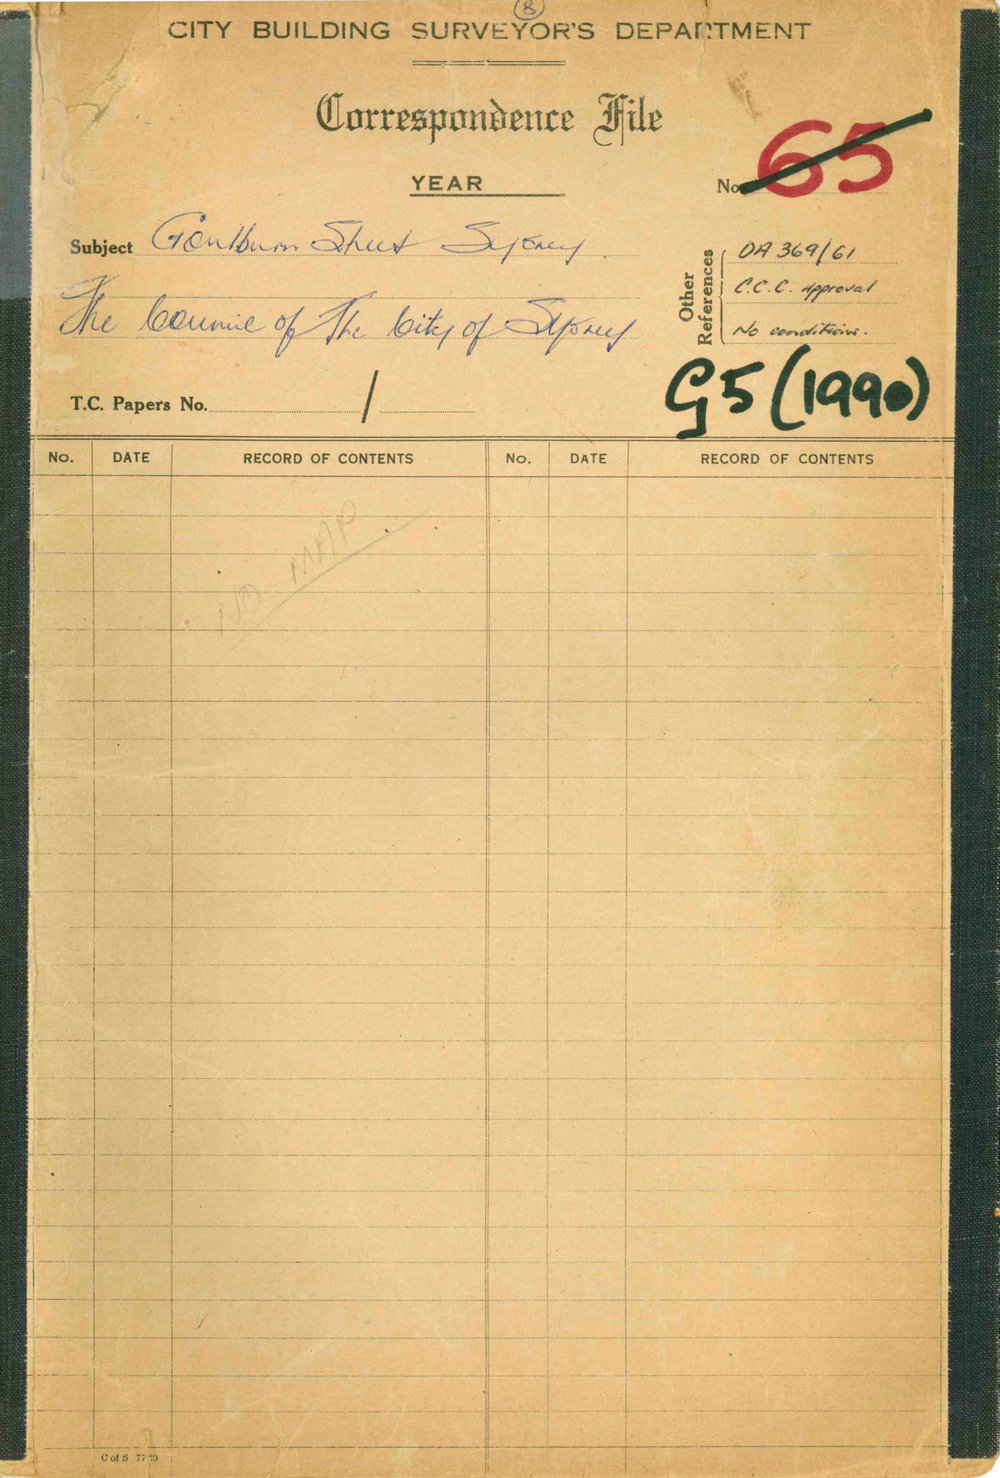 8
CITY BUILDING SURVEYOR'S DEPARTMENT
Correspondence File
YEAR
No. 65
Subject Goulburn Street Sydney
The Council of The City of Sydney
Other References
DA 369/61
C.C.C. approval
No conditions.
T.C. Papers No. /
G5 (1990)
No. DATE RECORD OF CONTENTS No. DATE RECORD OF CONTENTS
NO MAP
C of S